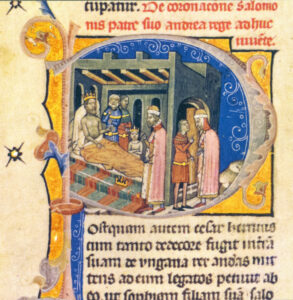 cupatur. De coronacōne salomo
nis patre suo andrea rege ad huc
viuēte.
Ostquam autem cesar henricus
cum tanto dedecore fugit infra
suam de vngaria rex andas mit
tens ad eum legatos petiuit ab
eo ut sophiam filiam suā salo